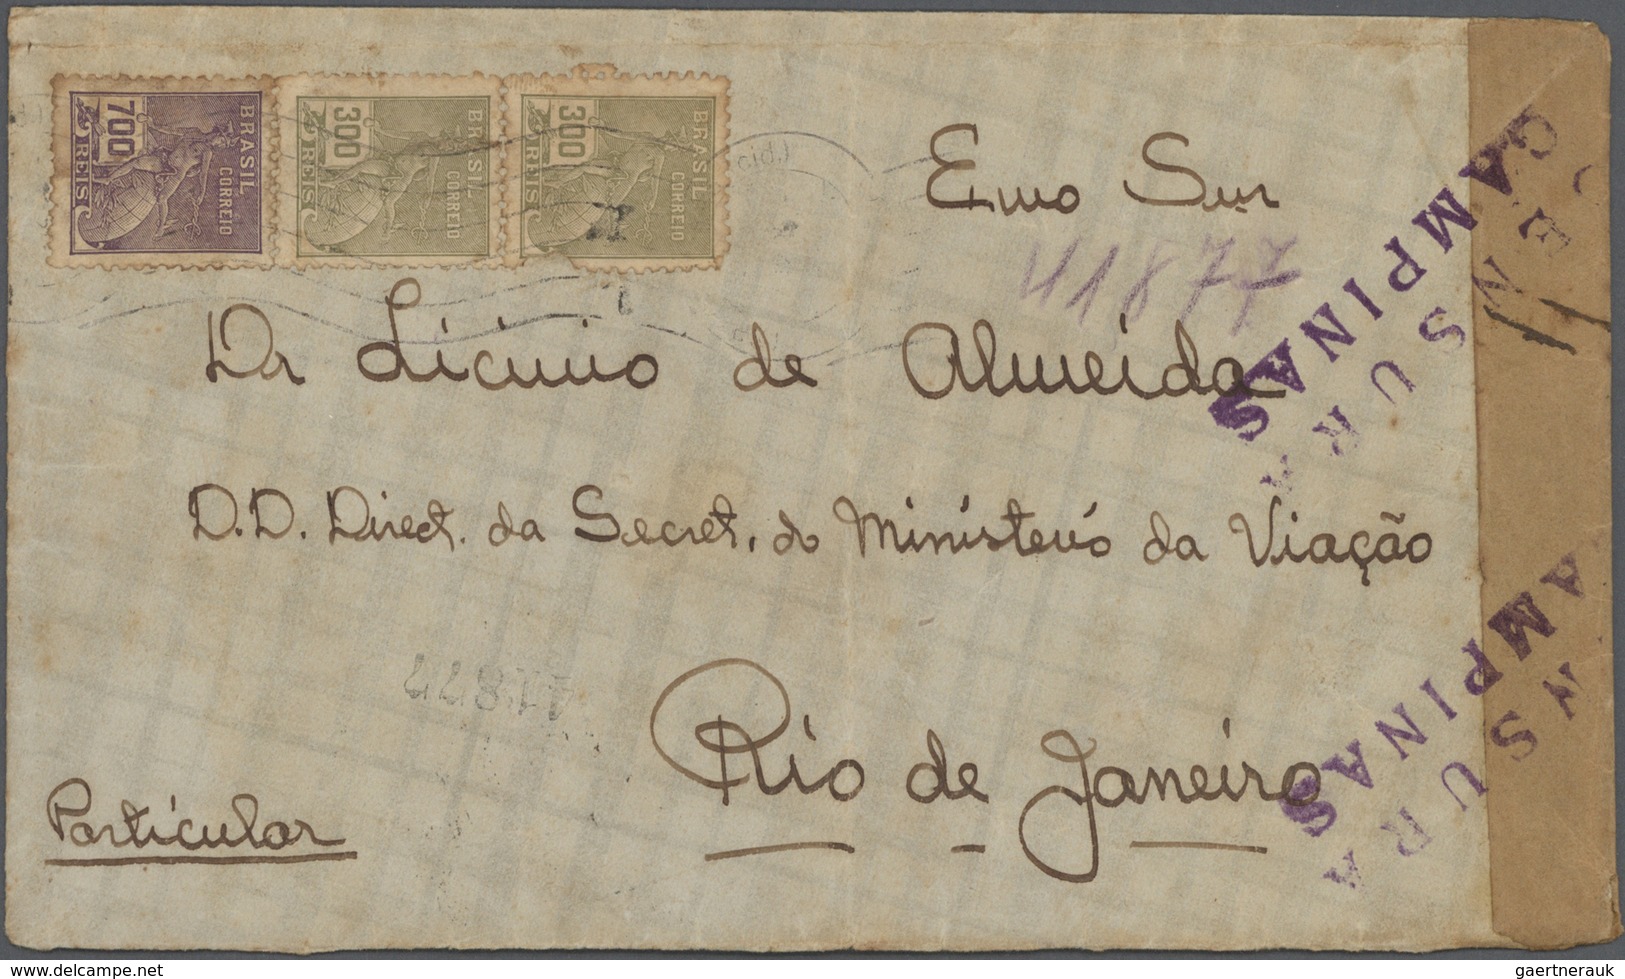 BRASIL CORREIO 700 REIS
BRASIL CORREIO 300 REIS
BRASIL CORREIO 300 REIS
Exmo Snr
41877
Dr Licinio de Almeida
D.D. Direct. da Secret. do Ministerio da Viação
Rio de Janeiro
Particular
41877
CENSURA
CAMPINAS
NSURA
AMPINAS
www.delcampe.net
gaertnerauk